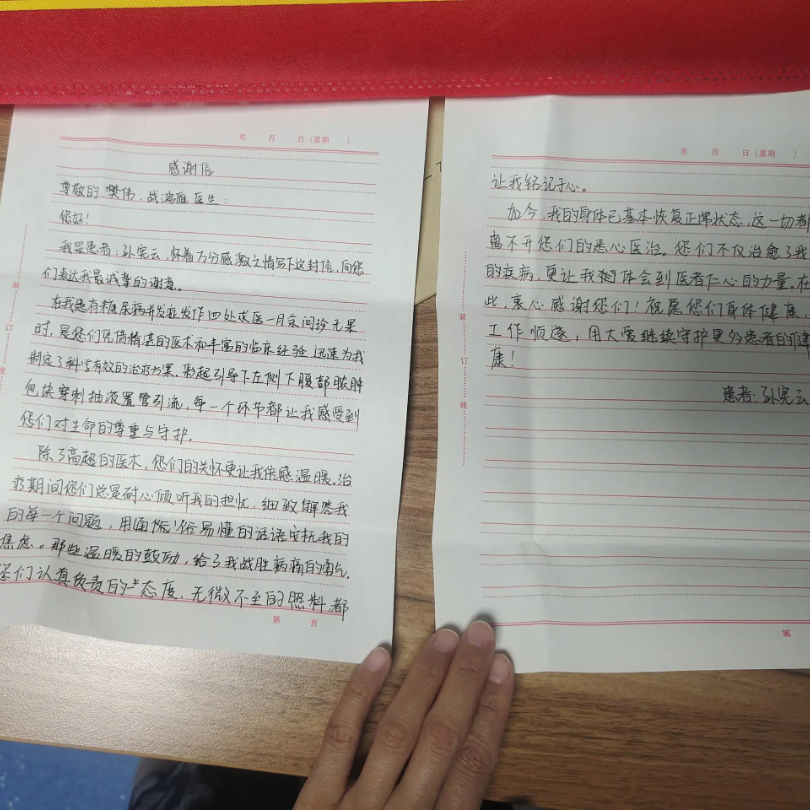 年 月 日(星期 )
感谢信
尊敬的 樊伟、战鸿雁 医生:
您好!
我是患者:孙宪云,怀着万分感激之情写下这封信,向您
们表达我最诚挚的谢意。
在我患有糖尿病并发症发作四处求医一月余问诊无果
时,是您们凭借精湛的医术和丰富的临床经验 迅速为我
制定了科学有效的治疗方案,彩超引导下左侧下腹部脓肿
包块穿刺抽液置管引流,每一个环节都让我感受到
您们对生命的尊重与守护。
除了高超的医术,您们的关怀更让我倍感温暖。治
疗期间您们总是耐心倾听我的担忧,细致解答我
的每一个问题,用通俗易懂的话语安抚我的
焦虑。那些温暖的鼓励,给了我战胜病痛的勇气。
您们认真负责的态度,无微不至的照料都
第 页
装
订
线
年 月 日(星期 )
让我铭记于心。
如今,我的身体已基本恢复正常状态,这一切都
离不开您们的悉心医治。您们不仅治愈了我
的疾病,更让我体会到医者仁心的力量。在
此,衷心感谢您们!祝愿您们身体健康,
工作顺遂,用大爱继续守护更多患者的健
康!
患者:孙宪云
装
订
线
第